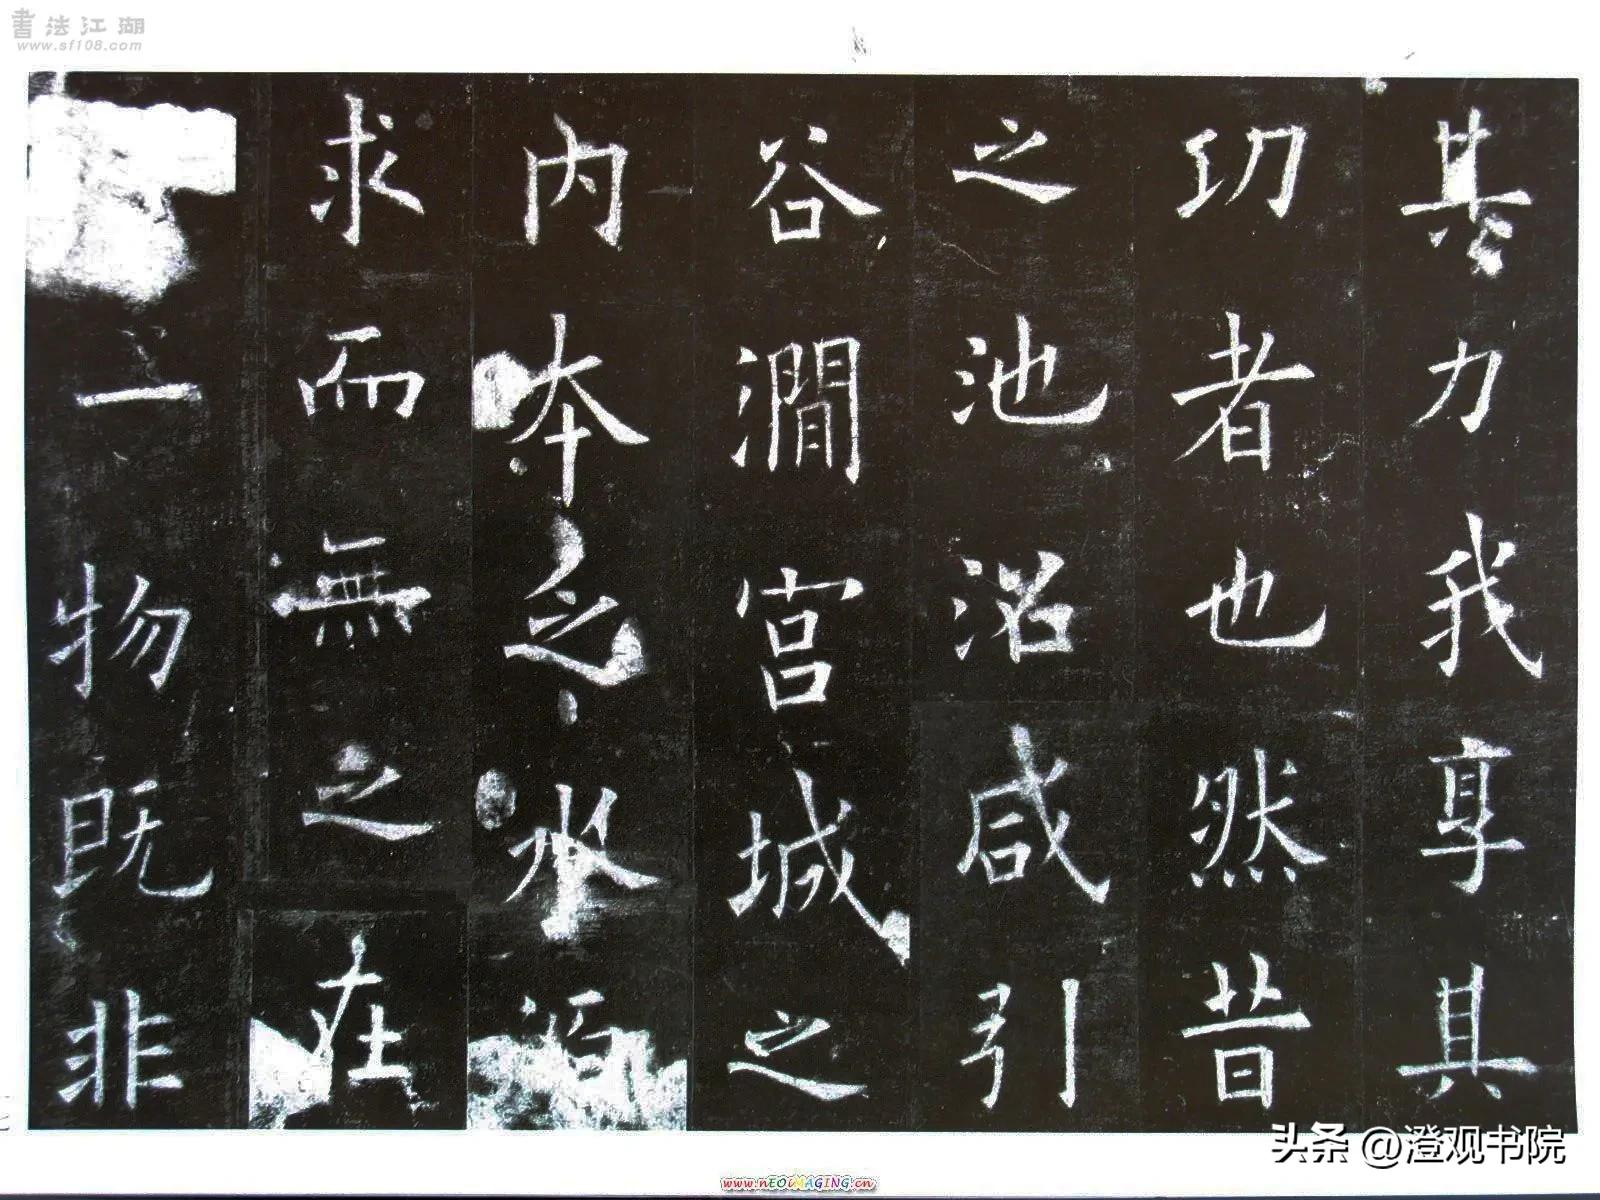 書法江湖
www.sf108.com
其力我享其
功者也然昔
之池沼咸引
谷澗宮城之
内本乏水源
求而無之在
一物既非
头条 @澄观书院
www.nEOiMAGING.cn